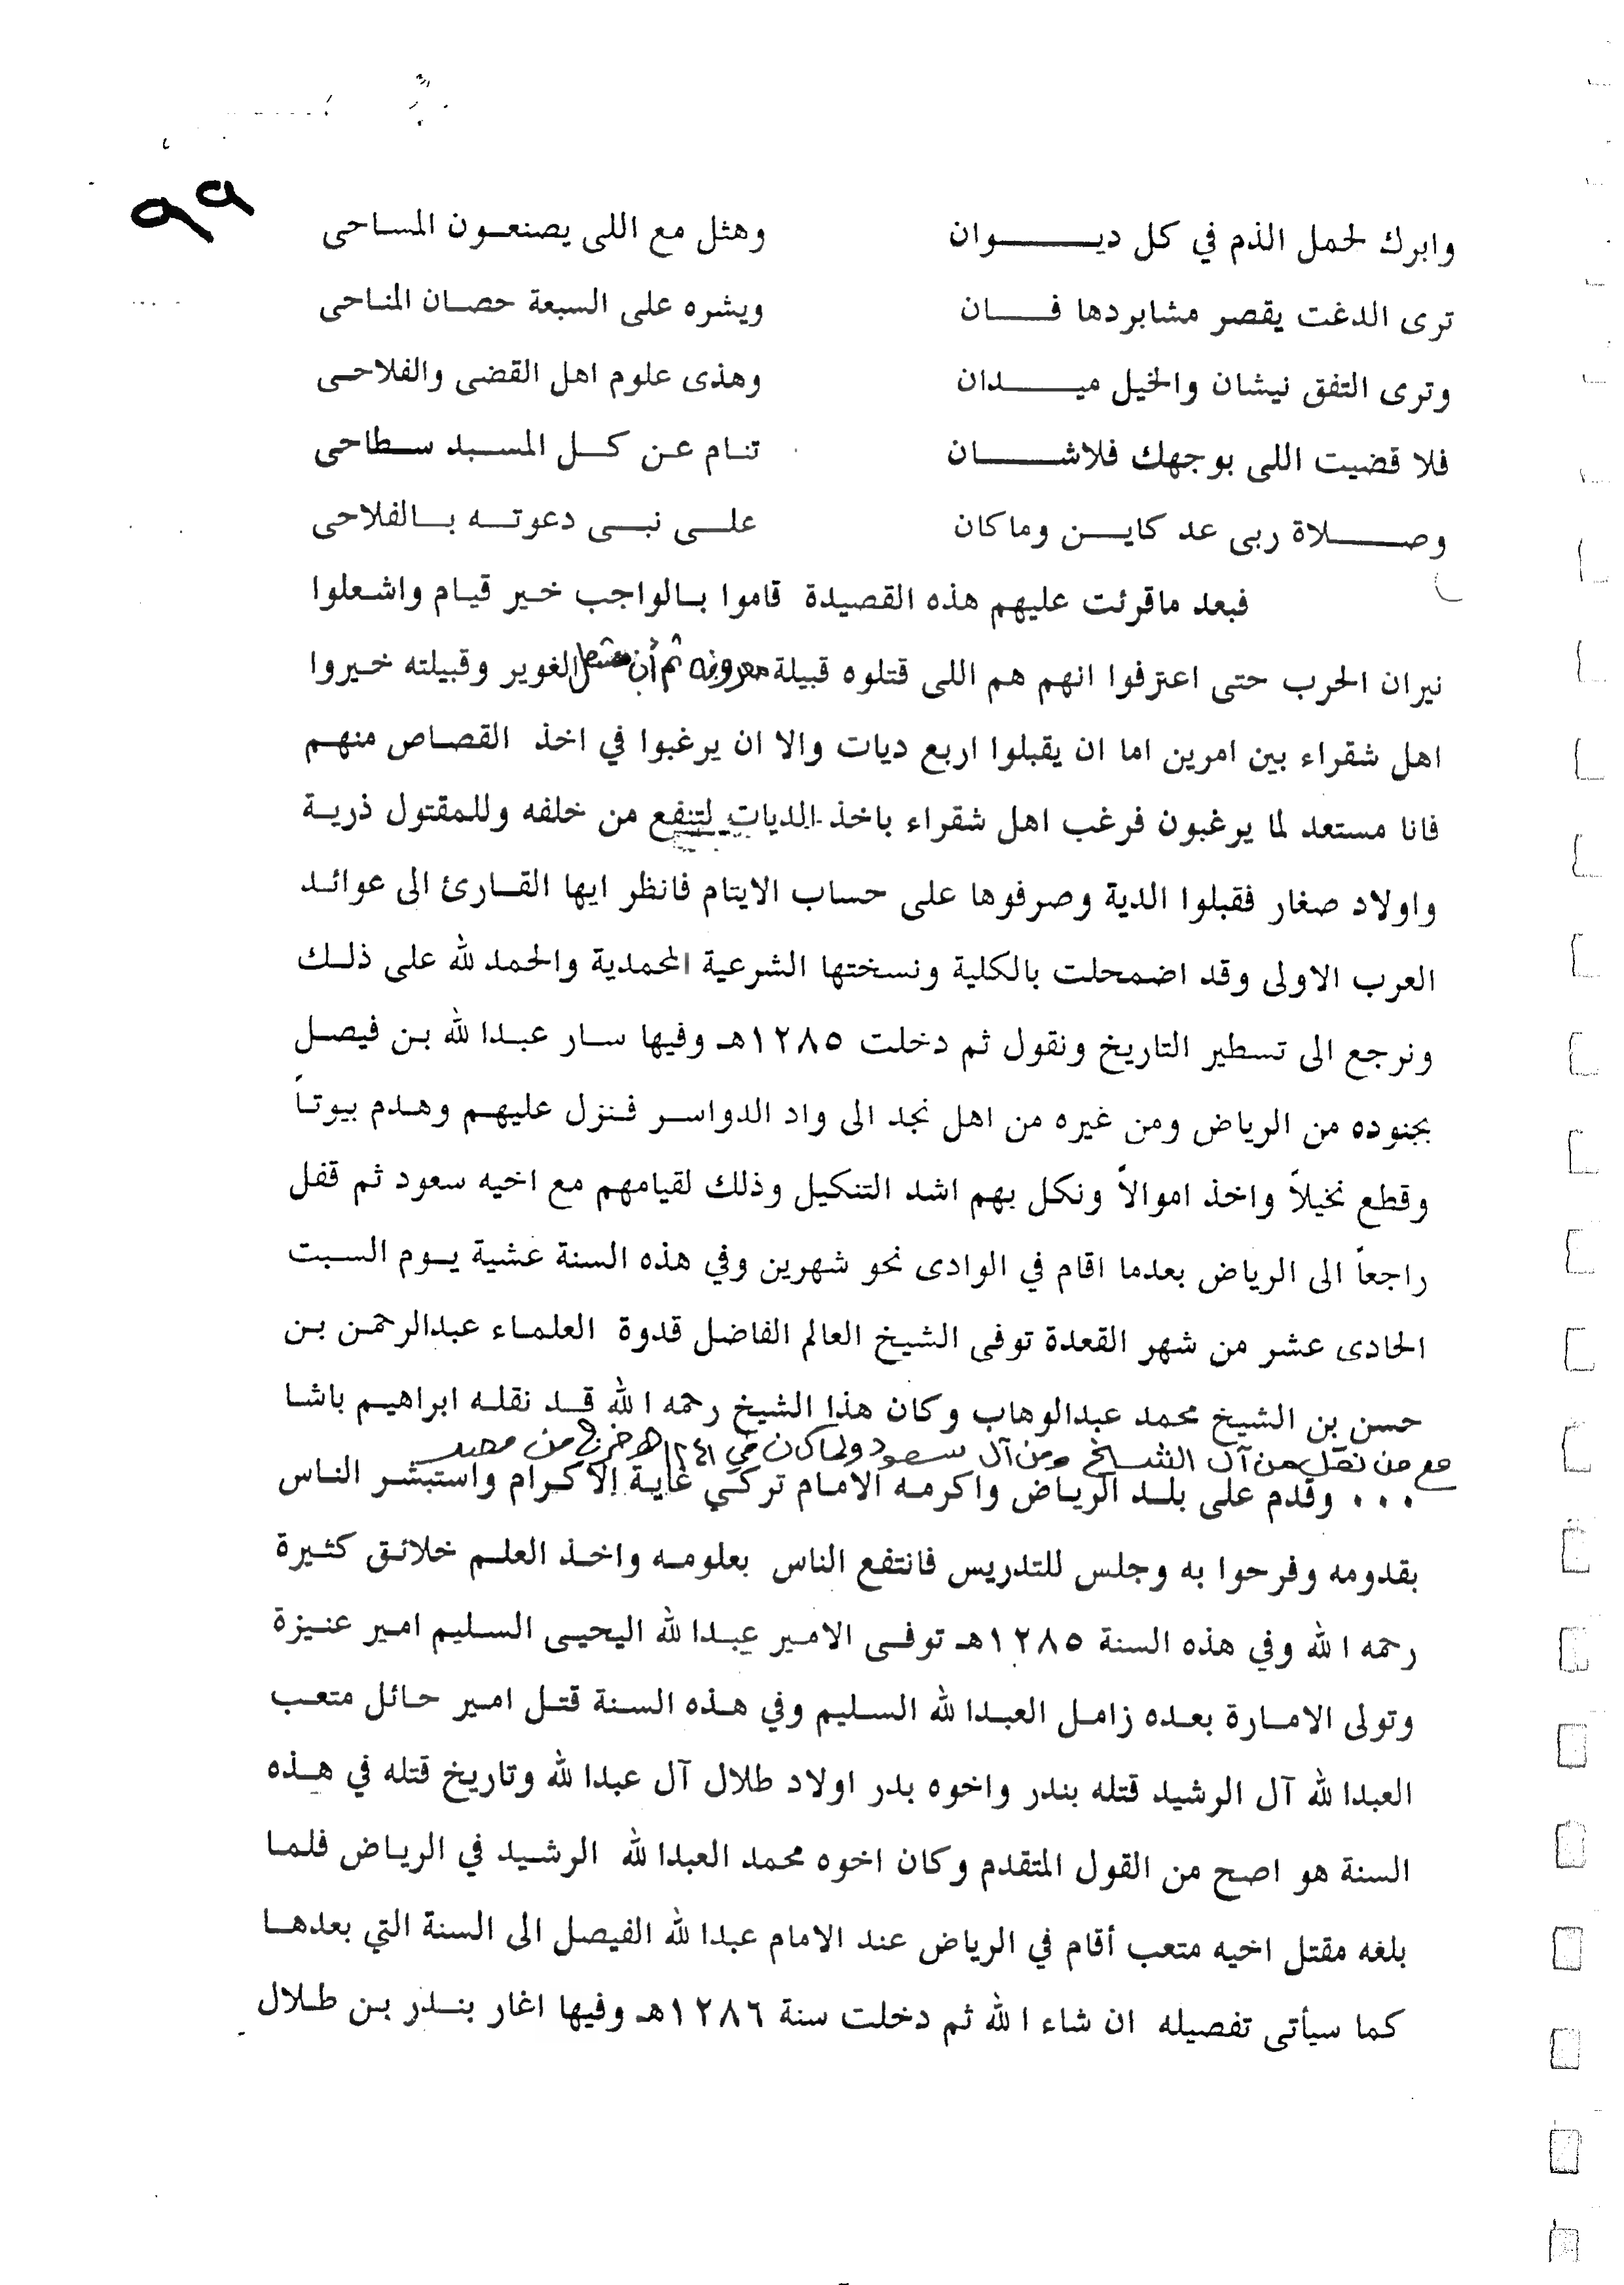 ٩٩
وابرك لحمل الذم في كل ديـــوان وهثل مع اللى يصنعون المساحى
ترى الدغت يقصر مشابردها فـــان ويشره على السبعة حصان المناحى
وترى التفق نيشان والخيل ميـــدان وهذى علوم اهل القضى والفلاحى
فلا قضيت اللى بوجهك فلاشـــان تنام عن كل المسبد سطاحى
وصـــلاة ربى عد كاين وماكان على نبى دعوته بالفلاحى
فبعد ماقرئت عليهم هذه القصيدة قاموا بالواجب خير قيام واشعلوا
نيران الحرب حتى اعترفوا انهم هم اللى قتلوه قبيلة معروفه ثم أن الغوير وقبيلته خيروا
اهل شقراء بين امرين اما ان يقبلوا اربع ديات والا ان يرغبوا في اخذ القصاص منهم
فانا مستعد لما يرغبون فرغب اهل شقراء باخذ الديات لتنفع من خلفه وللمقتول ذرية
واولاد صغار فقبلوا الدية وصرفوها على حساب الايتام فانظر ايها القارئ الى عوائد
العرب الاولى وقد اضمحلت بالكلية ونسختها الشرعية المحمدية والحمد لله على ذلك
ونرجع الى تسطير التاريخ ونقول ثم دخلت ١٢٨٥هـ وفيها سار عبدا لله بن فيصل
بجنوده من الرياض ومن غيره من اهل نجد الى واد الدواسر فنزل عليهم وهدم بيوتاً
وقطع نخيلاً واخذ اموالاً ونكل بهم اشد التنكيل وذلك لقيامهم مع اخيه سعود ثم قفل
راجعاً الى الرياض بعدما اقام في الوادى نحو شهرين وفي هذه السنة عشية يوم السبت
الحادى عشر من شهر القعدة توفى الشيخ العالم الفاضل قدوة العلماء عبدالرحمن بن
حسن بن الشيخ محمد عبدالوهاب وكان هذا الشيخ رحمه ا لله قد نقله ابراهيم باشا
مع من نقل من آل الشيخ ومن آل سعود ولما كان في ١٢٤١هـ خرج من مصر
... وقدم على بلد الرياض واكرمه الامام تركي غاية الاكرام واستبشر الناس
بقدومه وفرحوا به وجلس للتدريس فانتفع الناس بعلومه واخذ العلم خلائق كثيرة
رحمه ا لله وفي هذه السنة ١٢٨٥هـ توفى الامير عبدا لله اليحيى السليم امير عنيزة
وتولى الامارة بعده زامل العبدا لله السليم وفي هذه السنة قتل امير حائل متعب
العبدا لله آل الرشيد قتله بندر واخوه بدر اولاد طلال آل عبدا لله وتاريخ قتله في هذه
السنة هو اصح من القول المتقدم وكان اخوه محمد العبدا لله الرشيد في الرياض فلما
بلغه مقتل اخيه متعب أقام في الرياض عند الامام عبدا لله الفيصل الى السنة التي بعدها
كما سيأتى تفصيله ان شاء ا لله ثم دخلت سنة ١٢٨٦هـ وفيها اغار بندر بن طلال